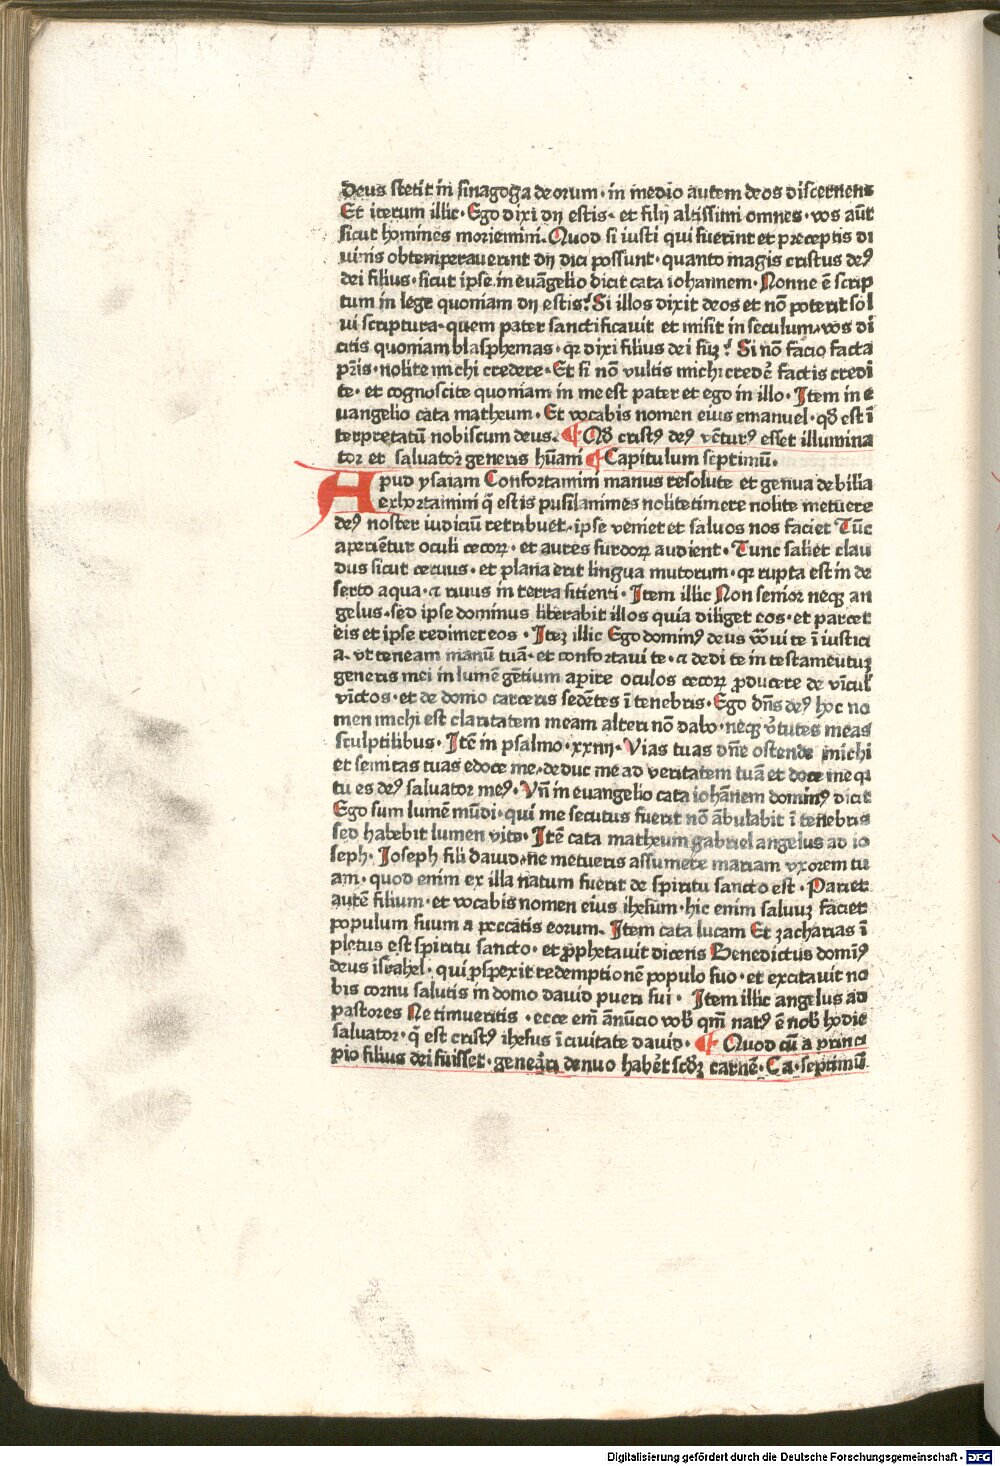 Deus stetit in sinagoga deorum· in medio autem deos discernens
Et iterum illic· Ego dixi dij estis· et filij altissimi omnes· vos aūt
sicut homines moriemini. Quod si iusti qui fuerint et preceptis di
uinis obtemperauerint dij dici possunt· quanto magis cristus deꝰ
dei filius· sicut ipse in euāngelio dicit cata iohannem· Nonne ē scrip
tum in lege quoniam dij estis? Si illos dixit deos et nō poterit sol
ui scriptura· quem pater sanctificauit et misit in seculum· vos di
citis quoniam blasphemas· qꝛ dixi filius dei suꝫ? Si nō facio facta
pr̄is· nolite michi credere· Et si nō vultis michi credē factis credi
te· et cognoscite quoniam in me est pater et ego in illo· Item in e
uangelio cata matheum· Et vocabis nomen eius emanuel· qd̄ est ī
terpretatū nobiscum deus. ¶ Qd̄ cristꝰ deꝰ vētur9 esset illumina
tor et saluator generis hūani ¶ Capitulum septimū.
Apud ysaiam Confortamini manus resolute et genua debilia
exhortamini q̄ estis pusilanimes nolite timere nolite metuere
deꝰ noster iudiciū retribuet· ipse veniet et saluos nos faciet Tūc
aperiētur oculi cecoꝝ· et aures surdoꝝ audient· Tunc saliet clau
dus sicut ceruus· et plana erit lingua mutorum· qꝛ rupta est in de
serto aqua· ⁊ riuus in terra sitienti· Item illic Non senior neqꝫ an
gelus· sed ipse dominus liberabit illos quia diliget eos· et parcet
eis et ipse redimet eos· Iteꝫ illic Ego dominꝰ deus vōui te ī iustici
a· vt teneam manū tuā· et confortaui te· ⁊ dedi te in testamentuꝫ
generis mei in lumē gētium apire oculos cecoꝝ ꝓducere de vīcul̕
vīctos· et de domo carceris sedētes ī tenebris· Ego dn̄s deꝰ hoc no
men michi est claritatem meam alteri nō dabo· neqꝫ v̄tutes meas
sculptilibus· Itē in psalmo· xxiiij· Vias tuas dn̄e ostende michi
et semitas tuas edoce me· deduc me ad veritatem tuā et doce me qꝛ
tu es deꝰ saluator meꝰ· Vn̄ in euangelio cata iohānem dominꝰ dicit
Ego sum lumē mūdi· qui me secutus fuerit nō ābulabit ī tenebris
sed habebit lumen vite· Itē cata matheum gabriel angelus ad io
seph· Ioseph fili dauid· ne metueris assumere mariam vxorem tu
am· quod enim ex illa natum fuerit de spiritu sancto est· Pariet
autē filium· et vocabis nomen eius ihesum· hic enim saluuꝫ faciet
populum suum a peccatis eorum· Item cata lucam Et zacharias ī
pletus est spiritu sancto· et ꝓphetauit dicens Benedictus domīꝰ
deus israhel· qui ꝓspexit redemptionē populo suo· et excitauit no
bis cornu salutis in domo dauid pueri sui· Item illic angelus ad
pastores Ne timueritis· ecce em̄ ānūcio vob̕ qm̄ natꝰ ē nob̕ hodie
saluator· q̄ est cristꝰ ihesus ī ciuitate dauid· ¶ Quod cū a princi
pio filius dei fuisset· generari denuo habēt scd̄ꝫ carnē· Ca· septimū
Digitalisierung gefördert durch die Deutsche Forschungsgemeinschaft · DFG